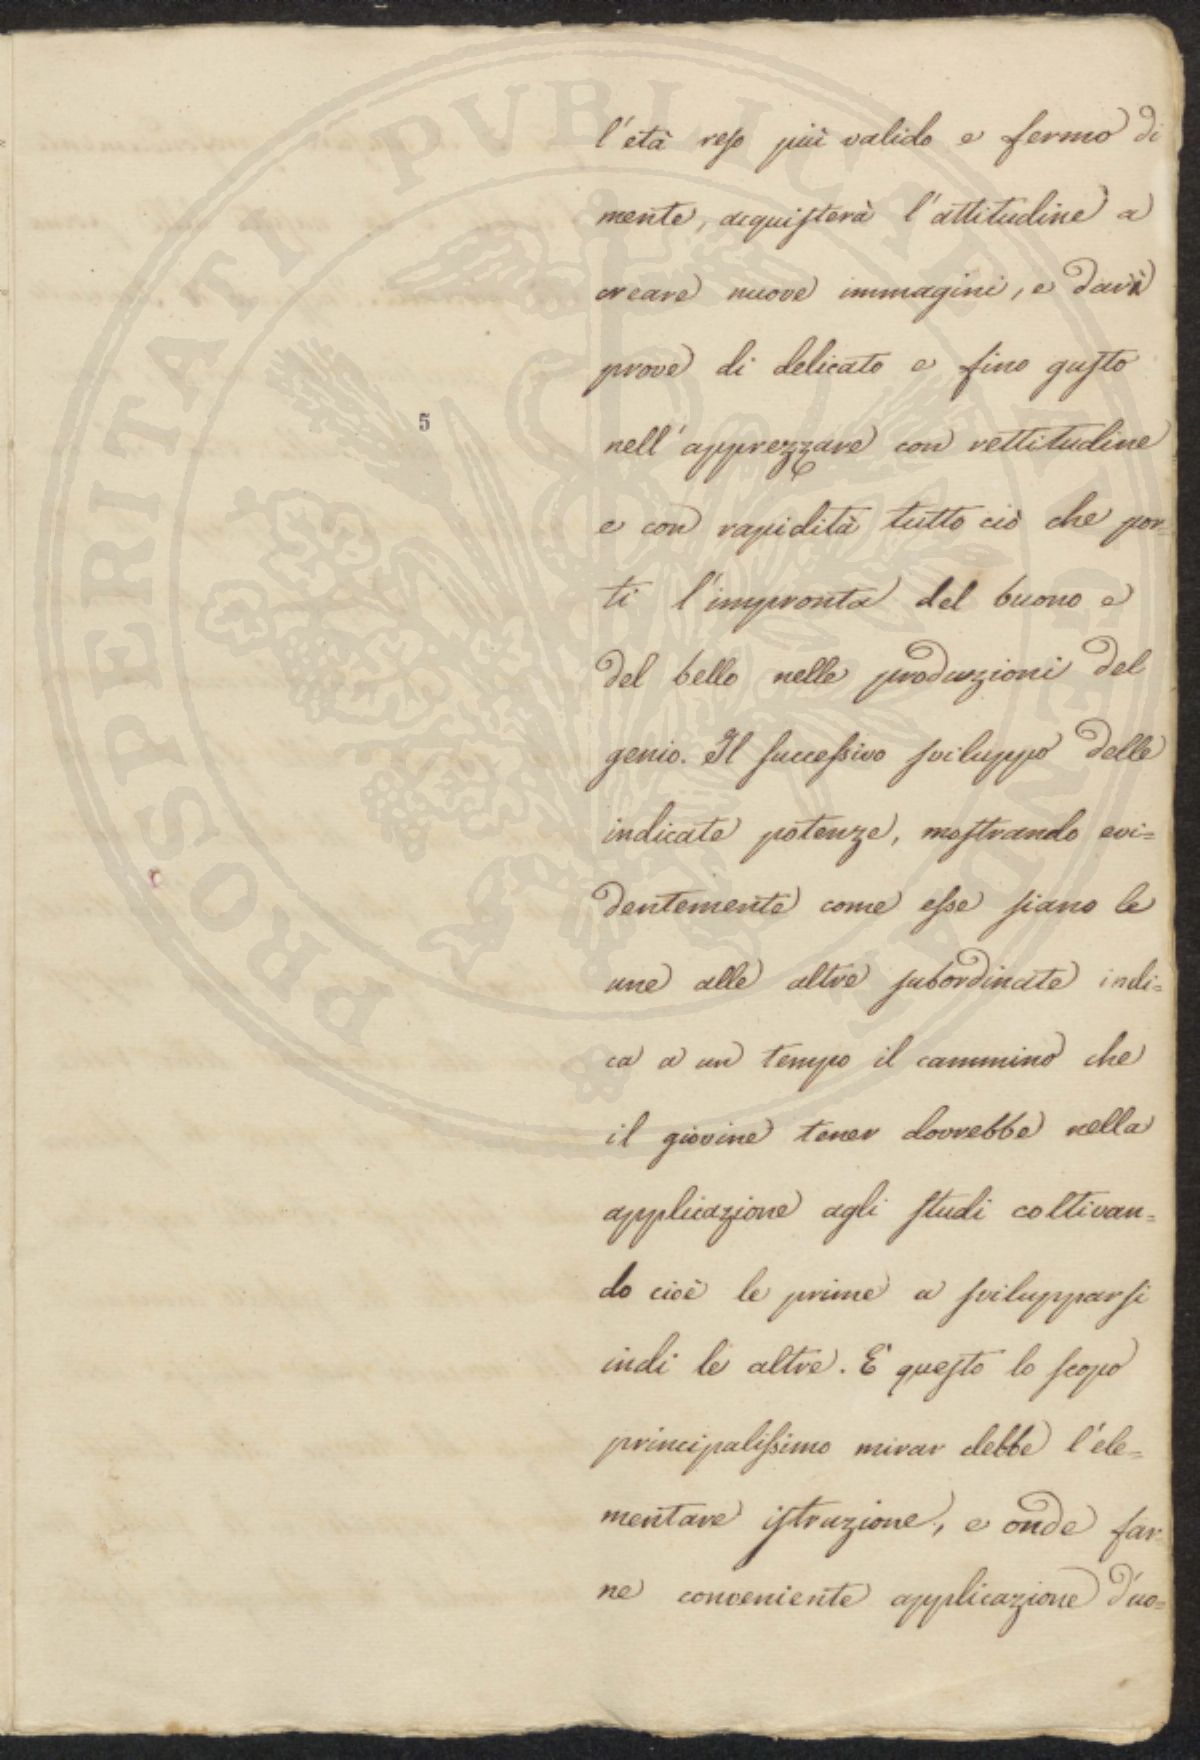 l'età reso più valido e fermo di
mente, acquisterà l'attitudine a
creare nuove immagini, e darà
prove di delicato e fino gusto
5
nell'apprezzare con rettitudine
e con rapidità tutto ciò che por-
ti l'impronta del buono e
del bello nelle produzioni del
genio. Il successivo sviluppo delle
indicate potenze, mostrando evi=
dentemente come esse siano le
une alle altre subordinate indi=
ca a un tempo il cammino che
il giovine tener dovrebbe nella
applicazione agli studi coltivan=
do cioè le prime a svilupparsi
indi le altre. E' questo lo scopo
principalissimo mirar debbe l'ele=
mentare istruzione, e onde far
ne conveniente applicazione d'uo=
PROSPERITATI PVBLICAE AVGENDAE